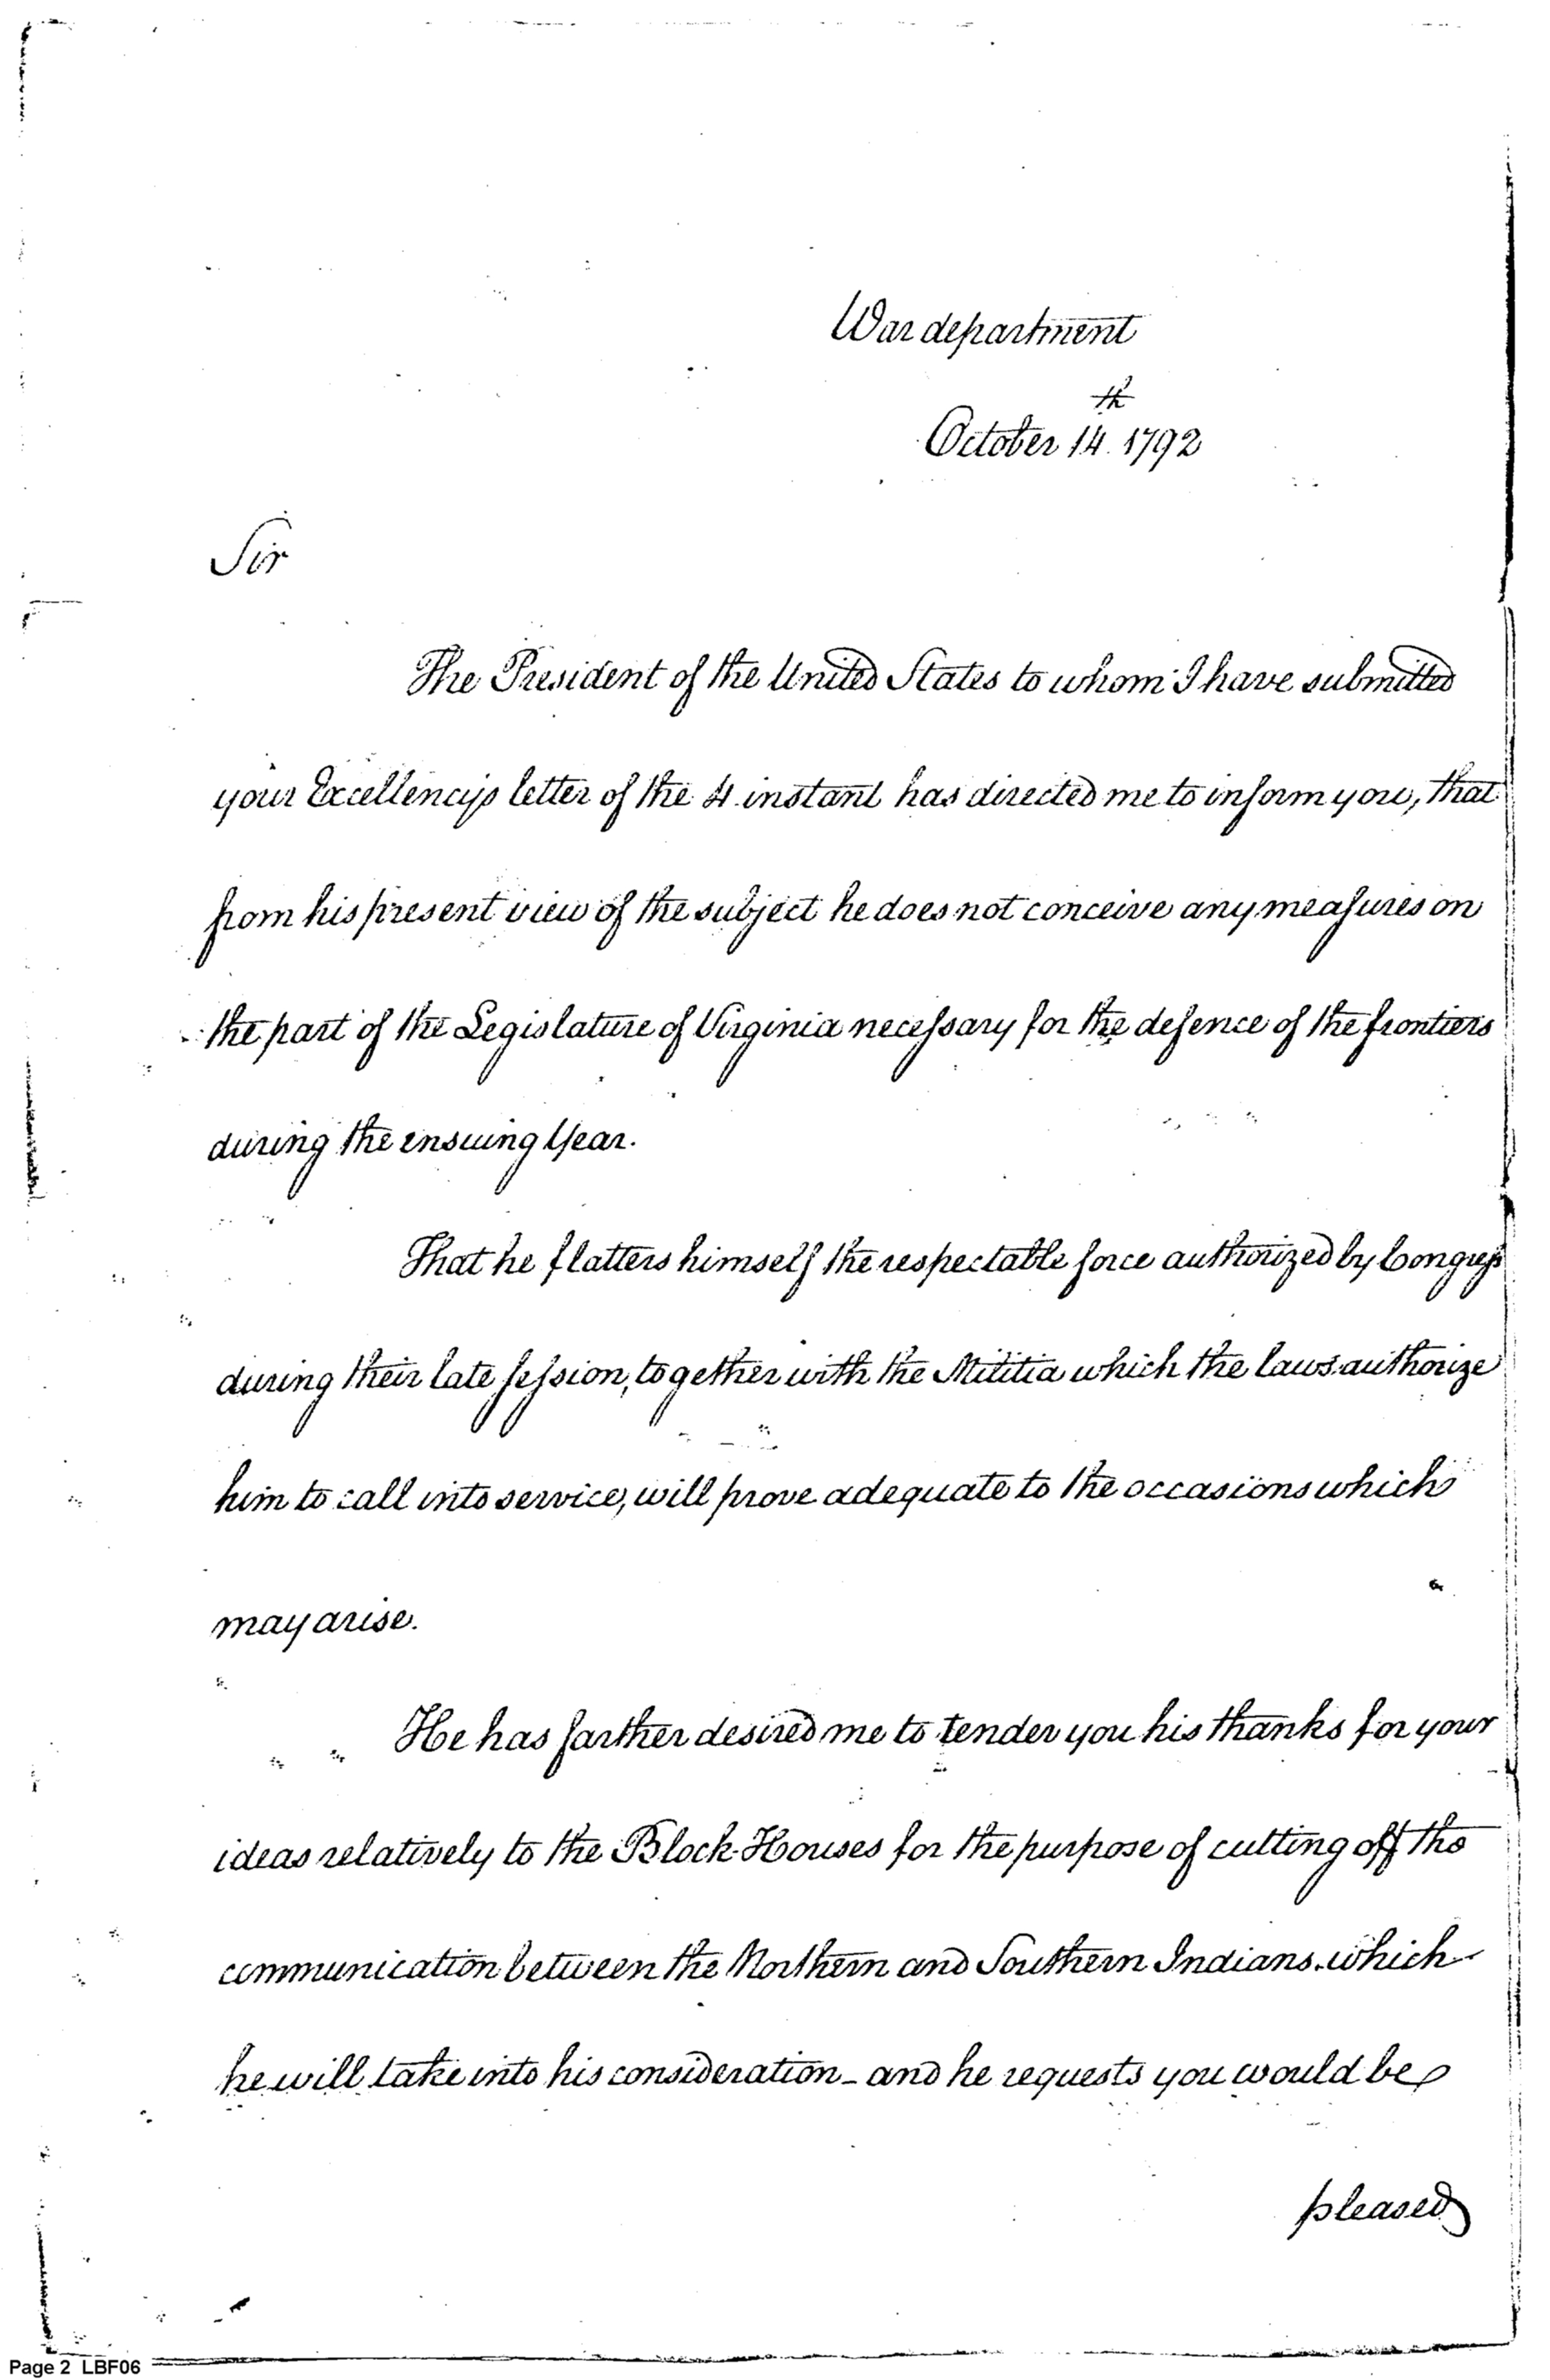 War department
th
October 14. 1792
Sir
The President of the United States to whom I have submitted
your Excellencys letter of the 4 instant has directed me to inform you, that
from his present view of the subject he does not conceive any measures on
the part of the Legislature of Virginia necessary for the defence of the frontiers
during the ensuing Year.
That he flatters himself the respectable force authorized by Congress
during their late session, together with the Militia which the laws authorize
him to call into service, will prove adequate to the occasions which
may arise.
He has farther desired me to tender you his thanks for your
ideas relatively to the Block-Houses for the purpose of cutting off the
communication between the Northern and Southern Indians. which
he will take into his consideration - and he requests you would be
pleased
Page 2 LBF06